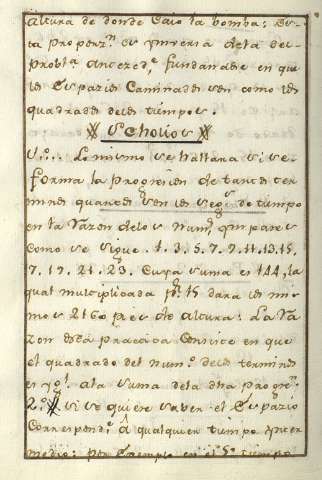 altura de donde Caió la bomba: Es-
ta properz.n es ynversa dela del
Probl.a anteced.e fundandose en que
los Espazios Caminados son como los
quadrados delos tiempos.
Scholios
Lo mismo se hallara si se
forma la Progresion de tantos ter-
minos quantos sean los seg.s de tiempo
en la razon delos Num.s ympares
como se sigue. 1. 3. 5. 7. 9. 11. 13. 15.
17. 19. 21. 23. Cuya suma es 144, la
qual multiplicada p.r 15 dara los mis-
mos 2160 pies de altura: La Ra-
zon desta practica Consiste en que
el quadrado del num.o delos terminos
es yg.l ala suma dela dha Progre.n
2.o si se quiere saver el Espazio
Correspond.e á qualquier tiempo ynter-
medio: por Exemplo en el 5.o tiempo